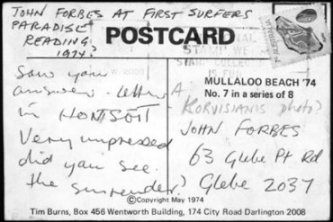 JOHN FORBES AT FIRST SURFERS
PARADISE
READING
1974?
POSTCARD
MULLALOO BEACH '74
No. 7 in a series of 8
Saw your
answer letter
in
Very impressed
did you see
the surrender?
A. KORVISIANIS photo?
JOHN FORBES
63 Glebe Pt Rd
Glebe 2037
©Copyright May 1974
Tim Burns, Box 456 Wentworth Building, 174 City Road Darlington 2008